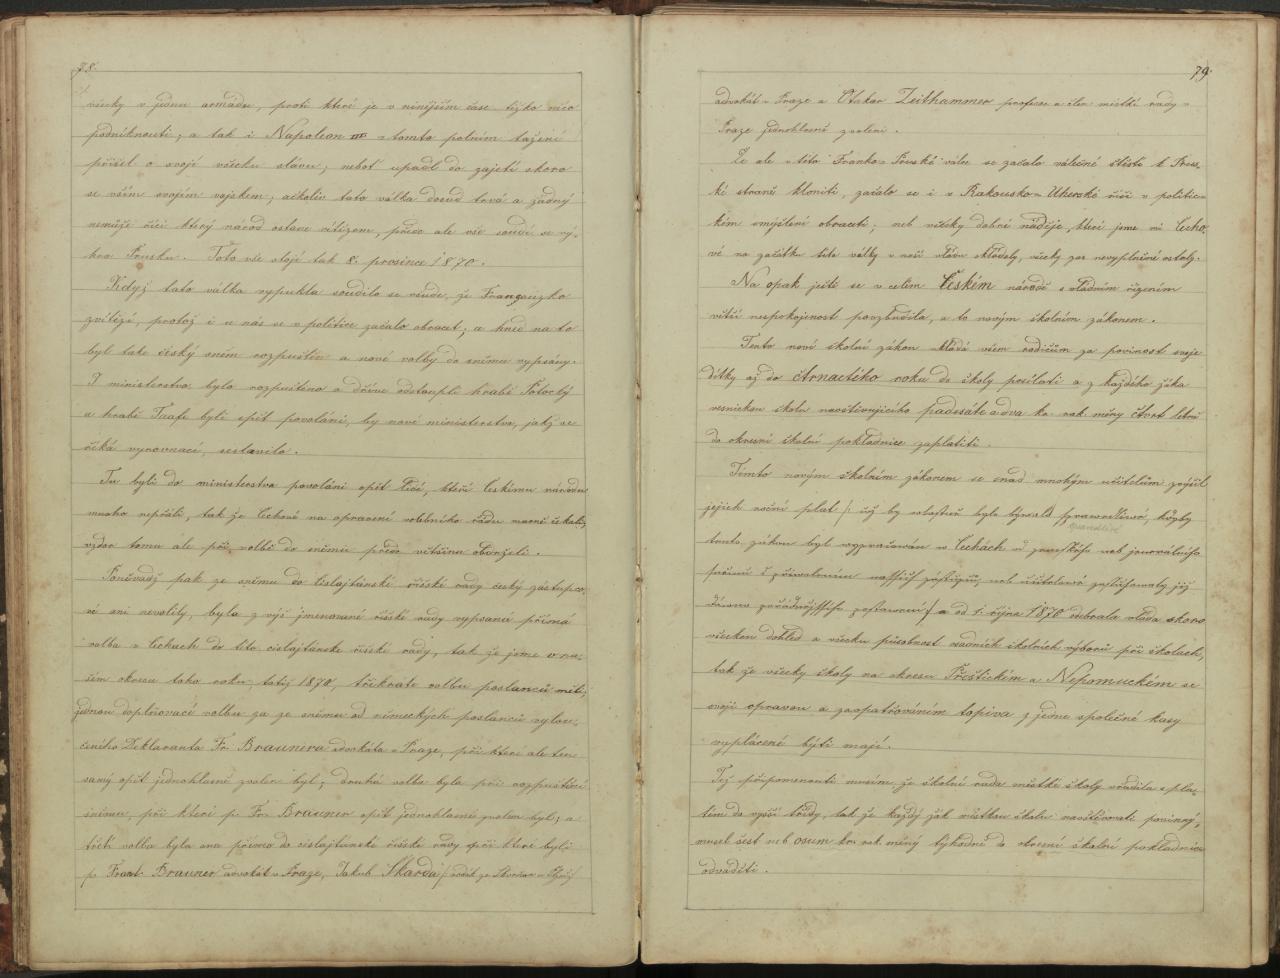 78.
všecky v jednu armádu, proti které je v ninějším čase těžko něco
podniknouti; a tak i Napoleon III v tomto polním tažení
přišel o svojí všecku slávu; neboť upadl do zajetí skoro
se vším svojím vojskem; ačkoliv tato válka dosud trvá a žádný
nemůže říci který národ ostane vítězem, přece ale vše soudí se vý-
hra Prusku. Toto vše stojí tak 8. prosince 1870.
Když tato válka vypukla soudilo se všude, že Francouzsko
zvítězí, protož i u nás se v politice začalo obracet; a hned na to
byl take český sněm rozpuštěn a nové volby do sněmu vypsány.
I ministerstvo bylo rozpuštěno a dříve odstouplí hrabě Potocký
a hrabě Taafe byli opět povoláni, by nové ministerstvo, jakž se
říká vyrovnací, sestavilo.
Tu byli do ministerstva povoláni opět lidé, kteří Českému národu
mnoho nepřáli, tak že Čechové na opravení volebního řádu marně čekali,
vzdor tomu ale při volbě do sněmu přece většinu obdrželi.
Poněvadž pak ze sněmu do Cislajtánské říšské rady český zástupco-
vé ani nevolily, byla z výš jmenované říšské rady vypsaná přímá
volba v Čechach do této cislajtánske říšské rady, tak že jsme v na-
šem okresu toho roku, totiž 1870, třikráte volbu poslanců měli;
jednou doplňovací volbu za ze sněmu od německých poslanců vylou-
čeného Deklaranta Fr. Braunera advokáta v Praze, při které ale ten
samý opět jednohlasně zvolen byl; druhá volba byla při rozpuštění
sněmu, při které p. Fr. Brauner opět jednohlasně zvolen byl; a
třetí volba byla ona přímo do cislajtánske říšské rady při které byli
p. Frant. Brauner advokát v Praze, Jakub Škarda / rodák ze Skvrňan u Plzně /
79.
advokát v Praze a Otakar Zeithammer profesor a člen městké rady v
Praze jednohlasně zvoleni.
Že ale v této Franko-Pruské válce se začalo válečné štěstí k Prus-
ké straně kloniti, začalo se i v Rakousko-Uherské říši v politic-
kém smýšlení obraceti; neb všecky dobré naděje, které jsme mi Čecho-
vé na začátku této války v naši vládu skládely, všecky zas nevyplněné ostaly.
Na opak ještě se v celém Českém národě s vládním řízením
větší nespokojenost povzbudila, a to novým školním zákonem.
Tento nový školní zákon ukládá všem rodičům za povinost svoje
dítky až do čtrnactého roku do školy posílati a z každého žáka
vesnickou školu navštěvujícího padesáte a dva kr. rak. měny čtvrt letně
do okresní školní pokladnice zaplatiti.
Tímto novým školním zákonem se snad mnohým učitelům zvýšil
jejich roční plat / což by vlastně bylo bývalo spravedlivé, kdyby
spravedlivé
tento zákon byl vypracován v Čechách
a od 1. října 1870 odebrala vláda skoro
všecken dohled a všecku působnost vesních školních výborů při školách,
tak že všecky školy na okresu Přeštickém a Nepomuckém se
svojí opravou a zaopatřováním topiva z jedné společné kasy
vyplácené býti mají.
Též připomenouti musím, že školní rada městké školy uvedila s pla-
tem do vyšší třídy, tak že každý žák městkou školu navštěvovati povinný,
museli šest neb osum kr. rak. měny týhodně do okresní školní pokladnice
odváděti.